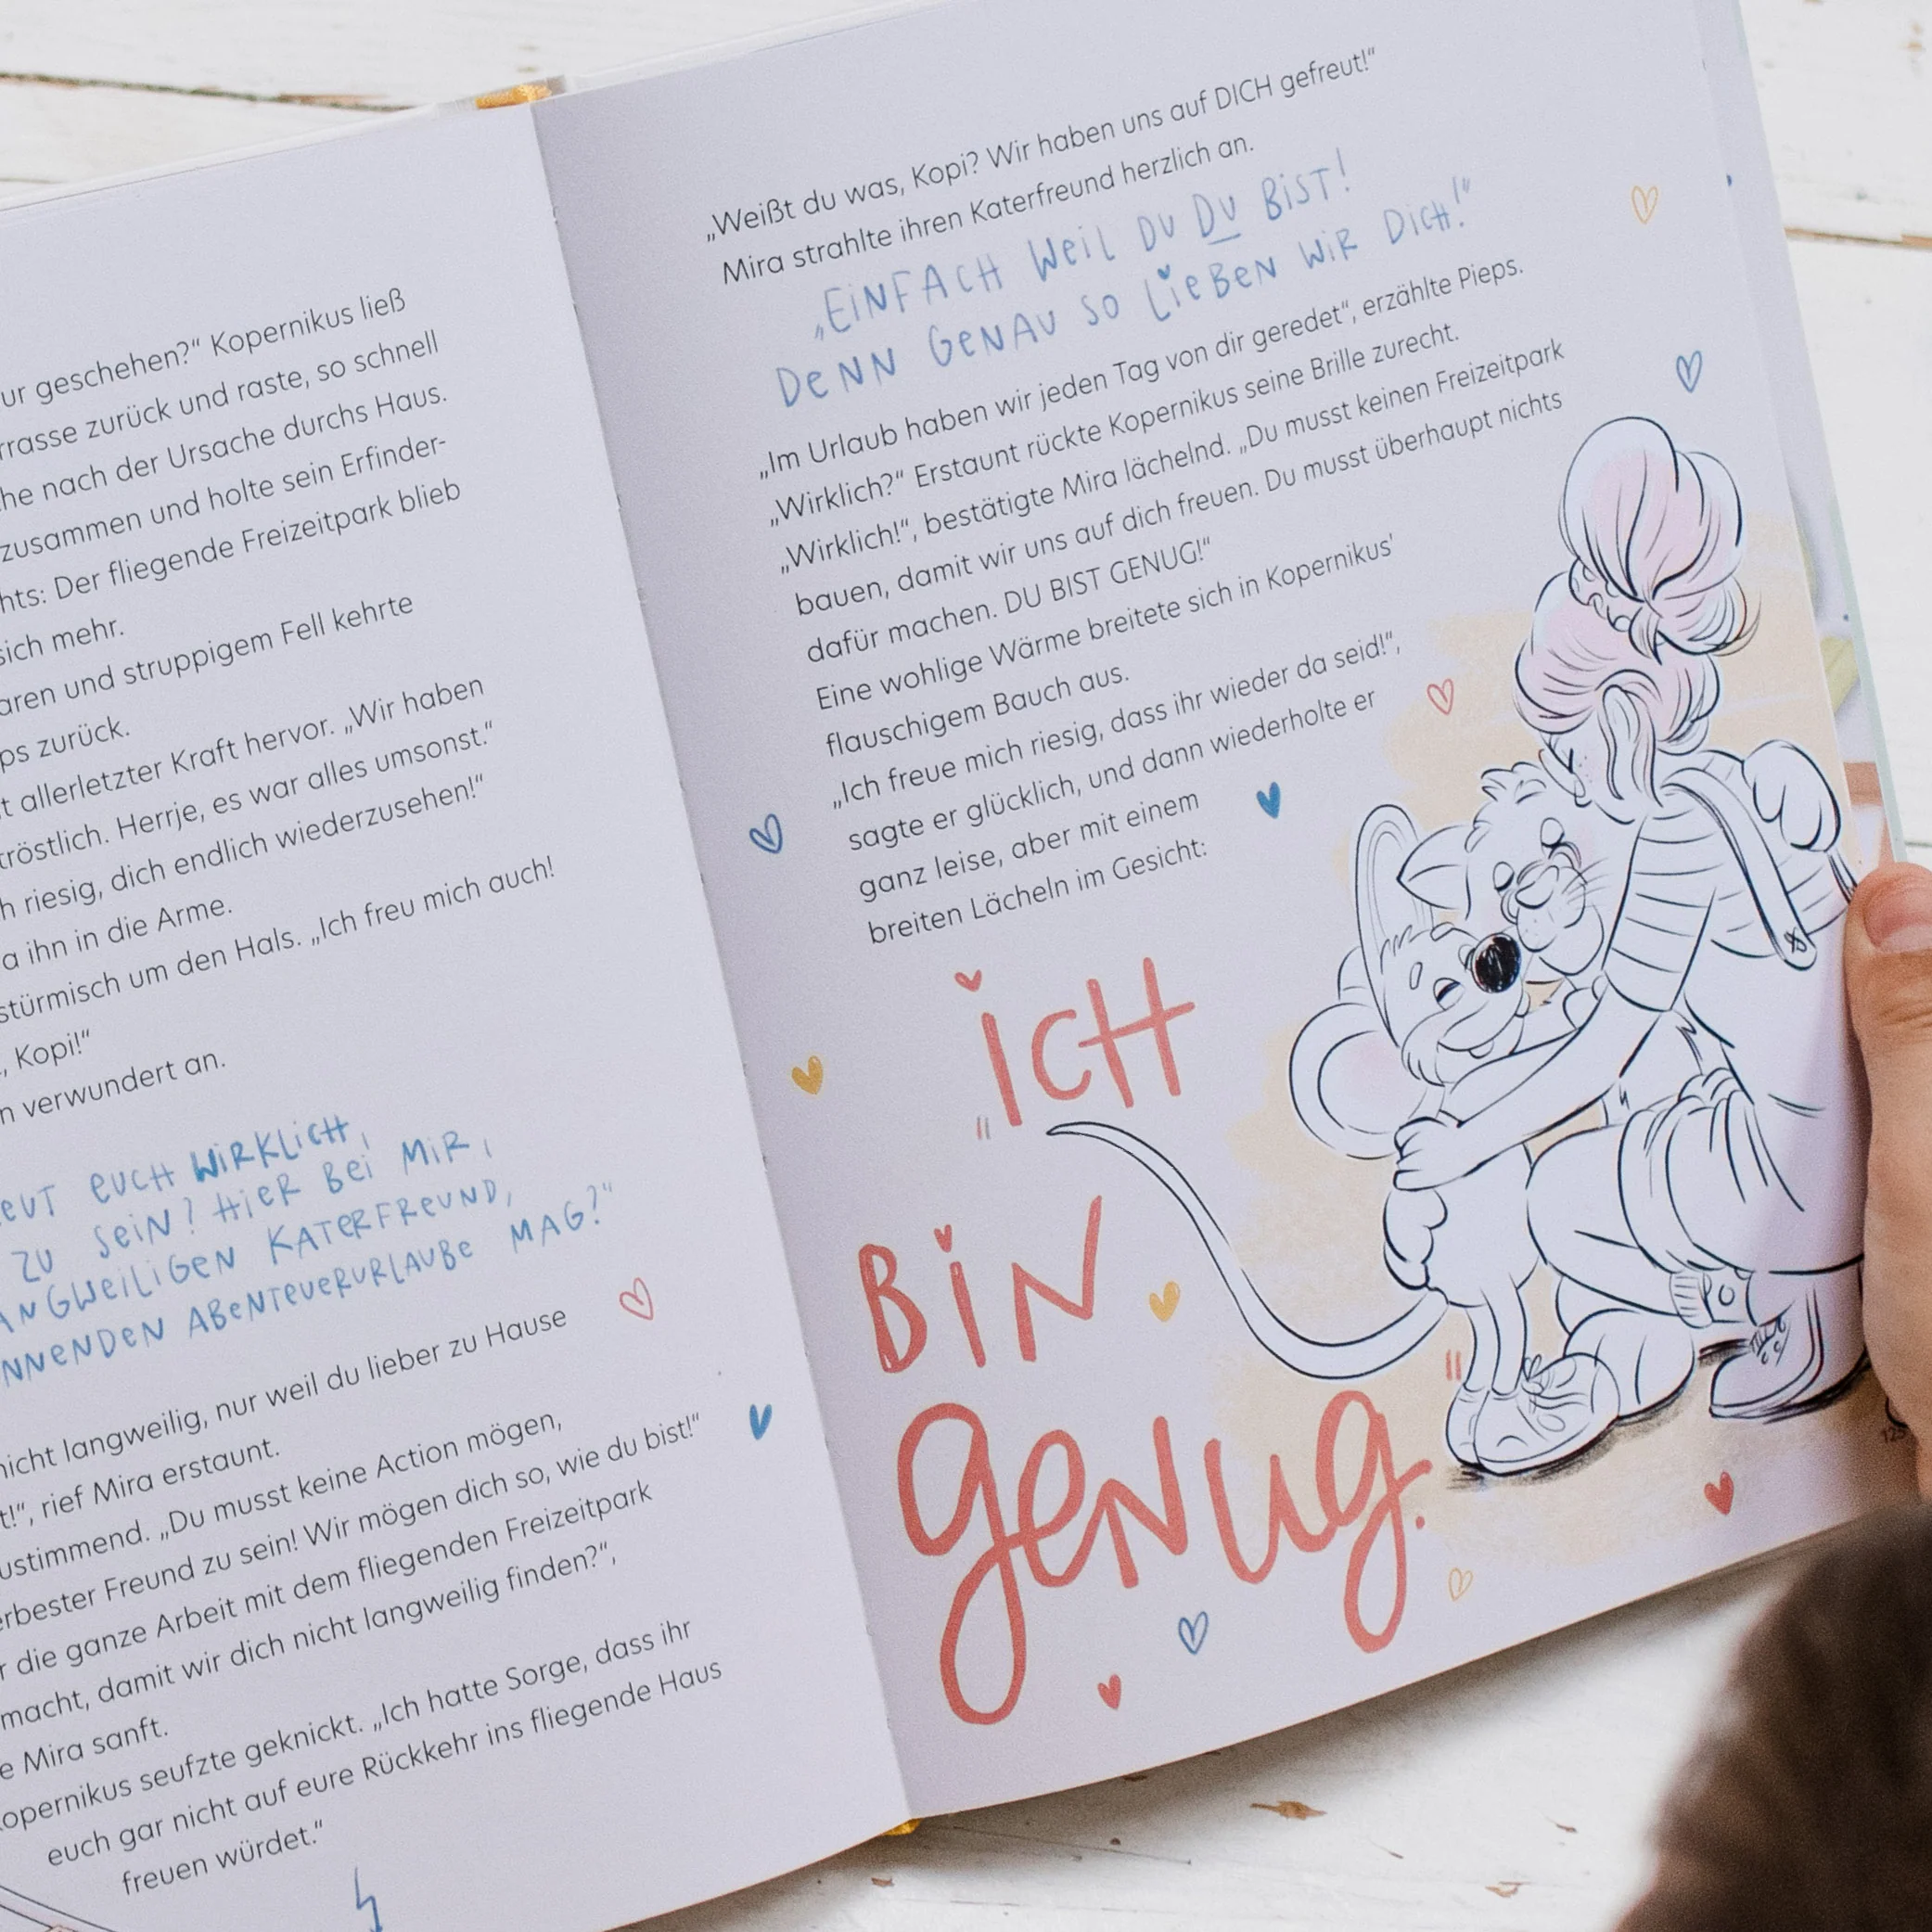 geschehen?“ Kopernikus ließ
zurück und raste, so schnell
nach der Ursache durchs Haus.
zusammen und holte sein Erfinder-
Der fliegende Freizeitpark blieb
sich mehr.
und struppigem Fell kehrte
zurück.
allerletzter Kraft hervor. „Wir haben
Herrje, es war alles umsonst.“
riesig, dich endlich wiederzusehen!“
ihn in die Arme.
stürmisch um den Hals. „Ich freu mich auch!
Kopi!“
verwundert an.
EUCH WIRKLICH,
ZU SEIN? HIER BEI MIR,
KATERFREUND,
ABENTEUERURLAUBE MAG?“
nicht langweilig, nur weil du lieber zu Hause
rief Mira erstaunt.
„Du musst keine Action mögen,
Freund zu sein! Wir mögen dich so, wie du bist!“
die ganze Arbeit mit dem fliegenden Freizeitpark
damit wir dich nicht langweilig finden?“,
Mira sanft.
seufzte geknickt. „Ich hatte Sorge, dass ihr
euch gar nicht auf eure Rückkehr ins fliegende Haus
freuen würdet.“
„Weißt du was, Kopi? Wir haben uns auf DICH gefreut!“
Mira strahlte ihren Katerfreund herzlich an.
„EINFACH WEIL DU DU BIST!
DENN GENAU SO LIEBEN WIR DICH!“
„Im Urlaub haben wir jeden Tag von dir geredet“, erzählte Pieps.
„Wirklich?“ Erstaunt rückte Kopernikus seine Brille zurecht.
„Wirklich!“, bestätigte Mira lächelnd. „Du musst keinen Freizeitpark
bauen, damit wir uns auf dich freuen. Du musst überhaupt nichts
dafür machen. DU BIST GENUG!“
Eine wohlige Wärme breitete sich in Kopernikus'
flauschigem Bauch aus.
„Ich freue mich riesig, dass ihr wieder da seid!“,
sagte er glücklich, und dann wiederholte er
ganz leise, aber mit einem
breiten Lächeln im Gesicht:
„ICH
BIN
GENUG.“